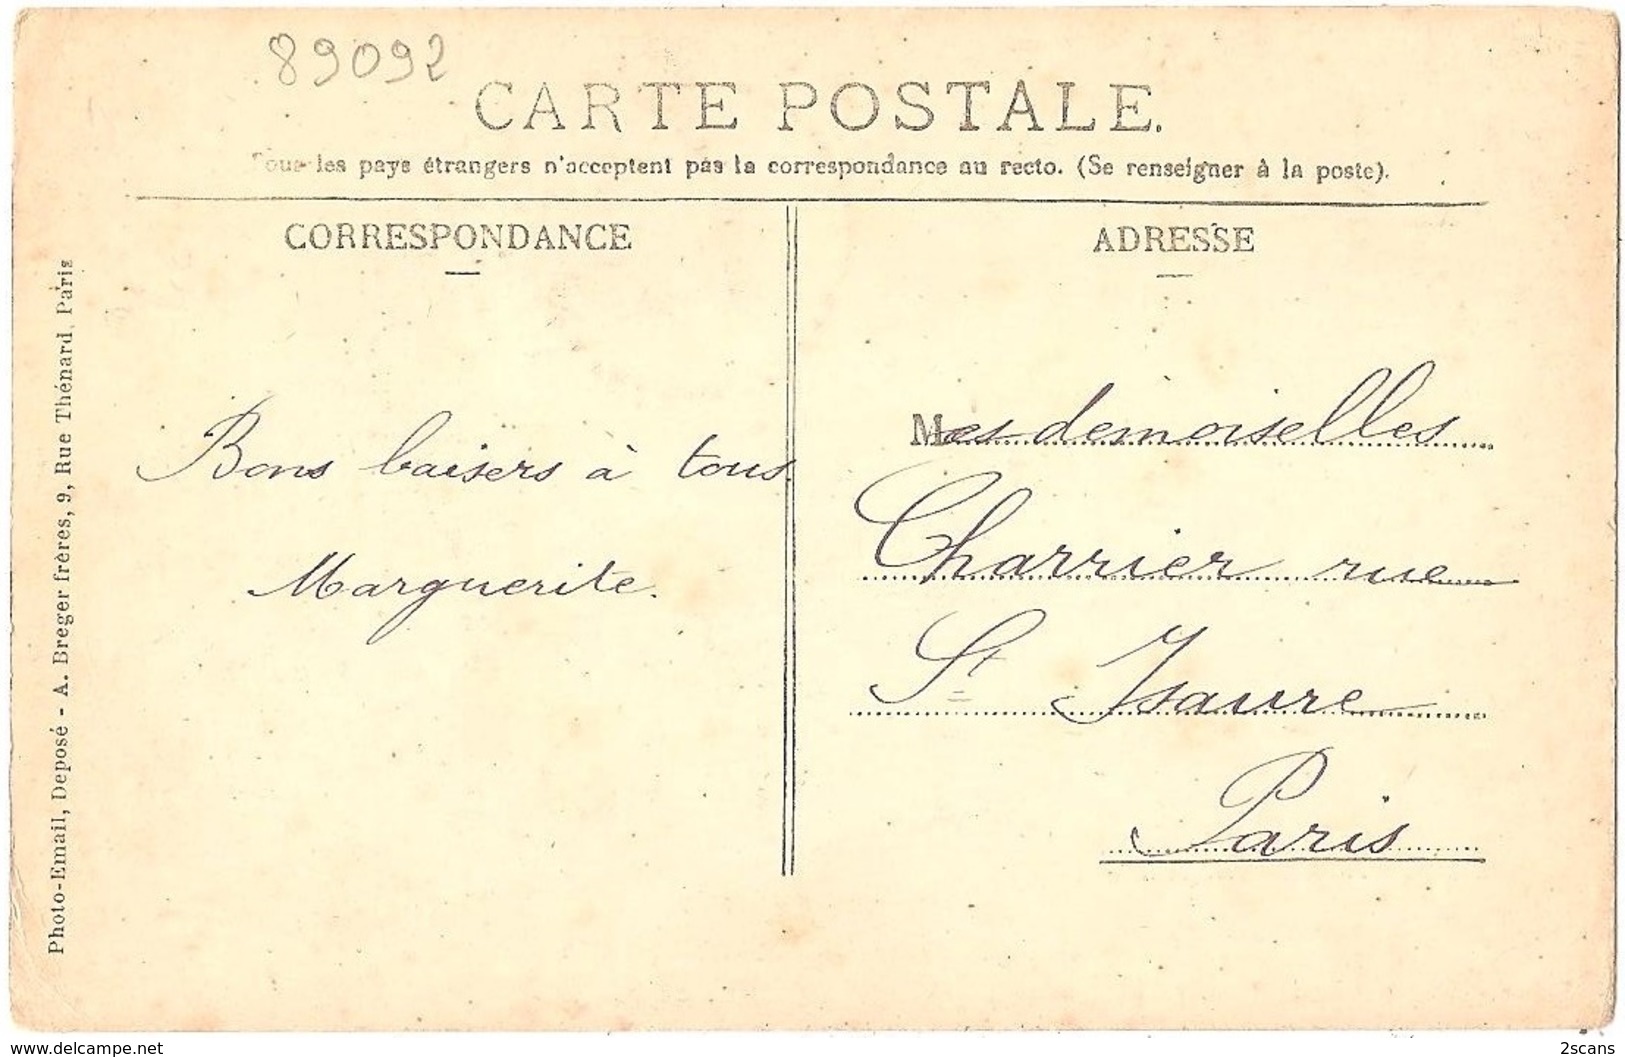 89092
CARTE POSTALE.
Tous les pays étrangers n'acceptent pas la correspondance au recto. (Se renseigner à la poste).
CORRESPONDANCE
ADRESSE
Photo-Email, Deposé - A. Breger frères, 9, Rue Thénard, Paris
Bons baisers à tous.
Marguerite.
Mesdemoiselles
Charrier rue
St Isaure
Paris
www.delcampe.net
2scans